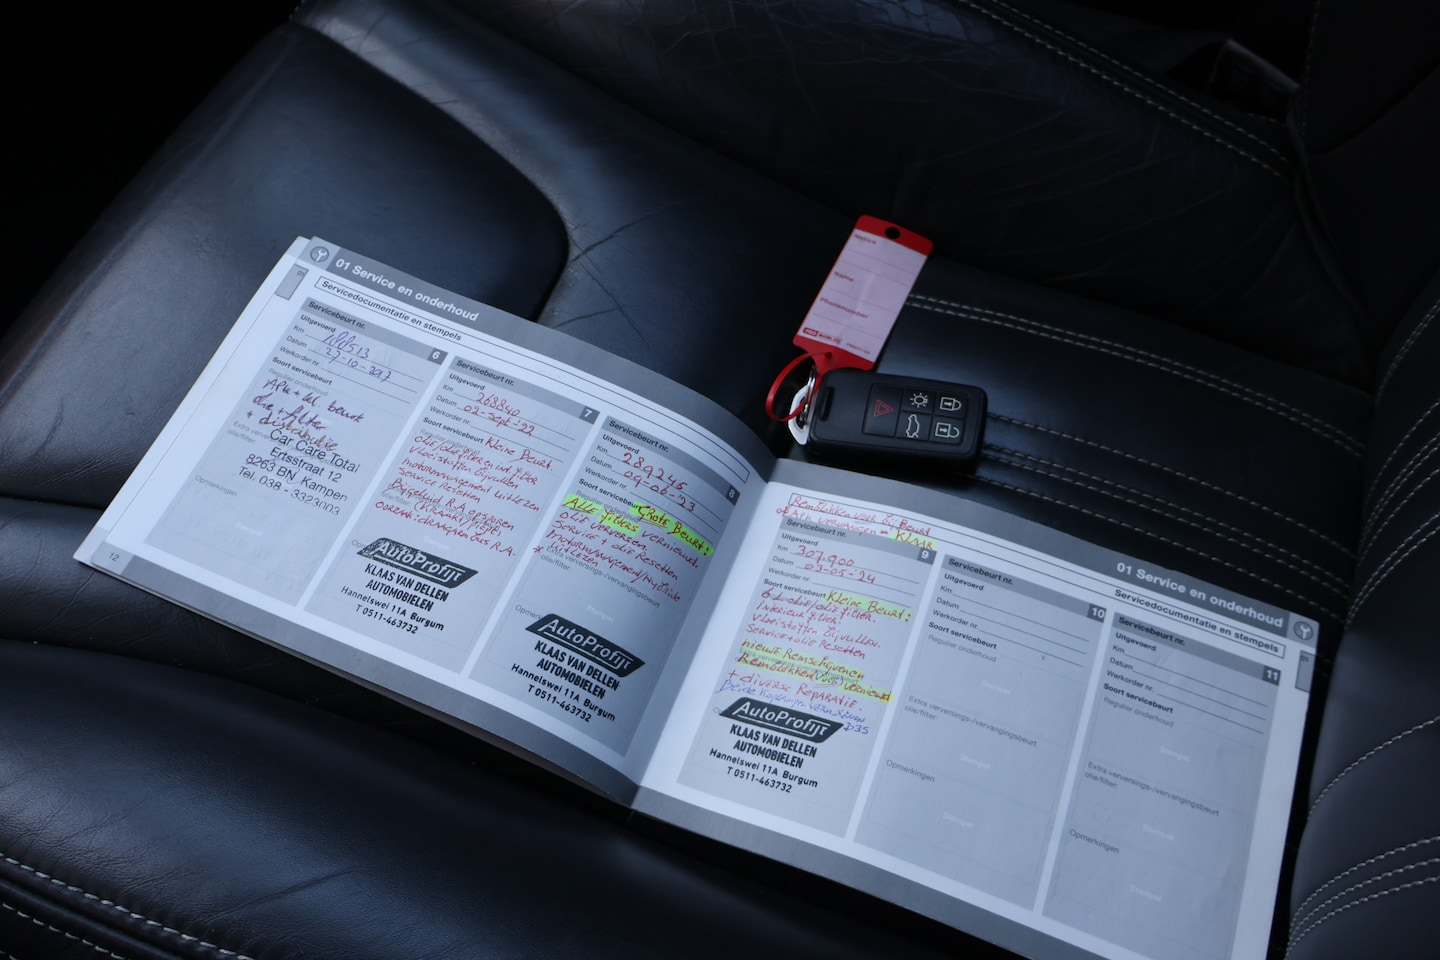 01 Service en onderhoud
Servicedocumentatie en stempels
Servicebeurt nr. 6
Uitgevoerd
Km
Datum 27-10-2017
Werkorder nr.
Soort servicebeurt
Regulier onderhoud
APK + beurt
olie + filter
+ distributie
Car Care Total
Ertsstraat 12
8263 BN Kampen
Tel. 038 - 3323003
Opmerkingen
Stempel
12
Servicebeurt nr. 7
Uitgevoerd
Km 268840
Datum 02-Sept-'22
Werkorder nr.
Soort servicebeurt Kleine Beurt.
olie/oliefilter int. filter
Vloeistoffen bijvullen
motormanagement uitlezen
Service Resetten
Bijgeluid R.A opsporen
(KRAAKT/piept)
oorzaak: draagarm bus R.A.
AutoProfijt
KLAAS VAN DELLEN
AUTOMOBIELEN
Hannelswei 11A Burgum
T 0511-463732
Servicebeurt nr. 8
Uitgevoerd
Km 289245
Datum 09-06-'23
Werkorder nr.
Soort servicebeurt Grote Beurt:
ALLE filters vernieuwt.
olie verversen
Service + olie Resetten
motormanagement
uitlezen
Extra verversings-/vervangingsbeurt
olie/filter:
Stempel
AutoProfijt
KLAAS VAN DELLEN
AUTOMOBIELEN
Hannelswei 11A Burgum
T 0511-463732
01 Service en onderhoud
Servicedocumentatie en stempels
Remblokken voor bij Beurt
APK vervangen = KLAAR
Servicebeurt nr. 9
Uitgevoerd
Km 307.900
Datum 03-05-'24
Werkorder nr.
Soort servicebeurt Kleine Beurt:
olie/oliefilter.
Interieur filter.
Vloeistoffen bijvullen.
Service+olie Resetten
nieuwe Remschijven en
Remblokken voor vernieuwd
+ diverse Reparatie.
Beide koplampen vernieuwen
D3S
AutoProfijt
KLAAS VAN DELLEN
AUTOMOBIELEN
Hannelswei 11A Burgum
T 0511-463732
Servicebeurt nr. 10
Uitgevoerd
Km
Datum
Werkorder nr.
Soort servicebeurt
Regulier onderhoud
Extra verversings-/vervangingsbeurt
olie/filter:
Stempel
Opmerkingen
Stempel
Servicebeurt nr. 11
Uitgevoerd
Km
Datum
Werkorder nr.
Soort servicebeurt
Regulier onderhoud
Stempel
Extra verversings-/vervangingsbeurt
olie/filter:
Stempel
Opmerkingen
Stempel
01